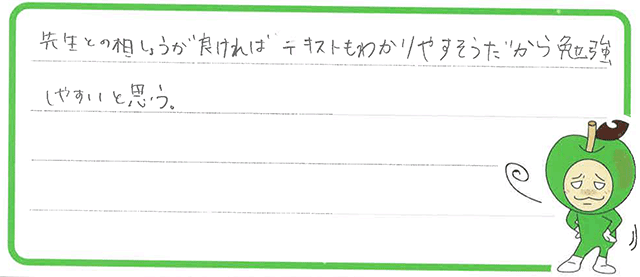 先生との相しょうが良ければテキストもわかりやすそうだから勉強
しやすいと思う。